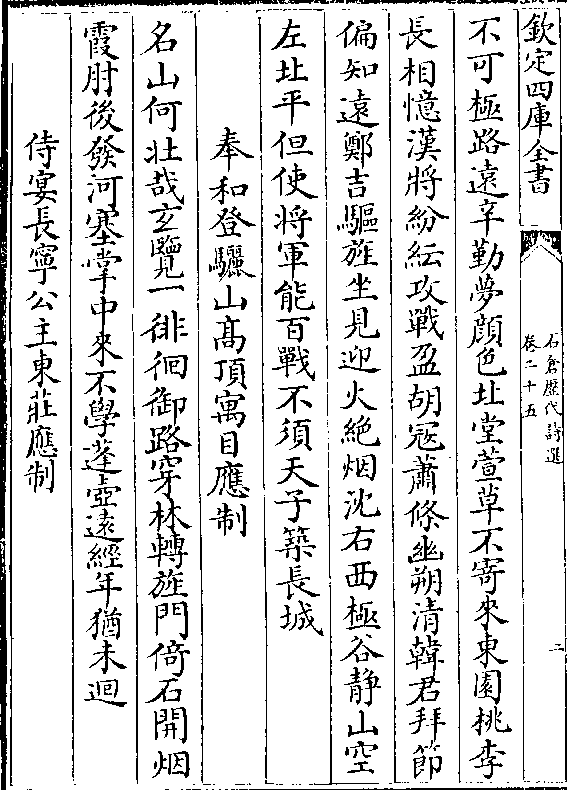 欽定四庫全書
石倉歷代詩選
卷二十五
二
不可極路遠辛勤夢顔色北堂萱草不寄來東園桃李
長相憶漢將紛紜攻戰盈胡冦蕭條幽朔清韓君拜節
偏知遠鄭吉驅旌坐見迎火絶烟沈右西極谷静山空
左北平但使將軍能百戰不須天子築長城
奉和登驪山髙頂寓目應制
名山何壯哉玄覽一徘徊御路穿林轉旌門倚石開烟
霞肘後發河塞掌中來不學蓬壺遠經年猶未迴
侍宴長寧公主東莊應制